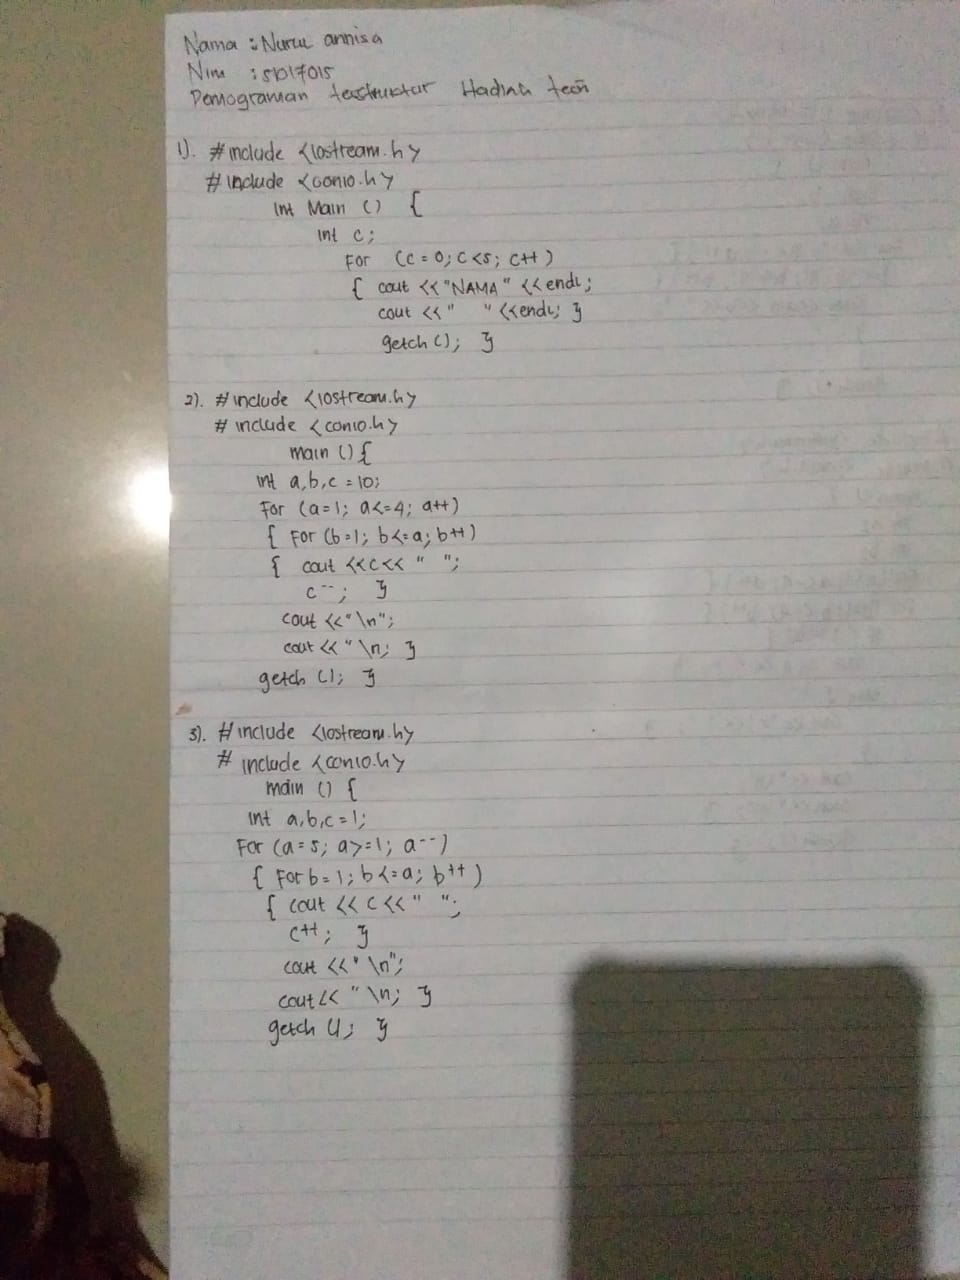 Nama : Nurul annisa
Nim : 51017015
Pemograman terstruktur Hadiah
1). #include <iostream.h>
#include <conio.h>
int Main () {
int c;
For (c = 0; c <5; c++)
{ cout <<"NAMA" <<endl;
cout <<" " <<endl; }
getch (); }
2). #include <iostream.h>
# include <conio.h>
main () {
int a,b,c = 10;
For (a=1; a<=4; a++)
{ For (b=1; b<=a; b++)
{ cout <<c<< " ";
c--; }
cout <<"\n";
cout << "\n; }
getch (); }
3). #include <iostream.h>
# include <conio.h>
main () {
int a,b,c = 1;
For (a = 5; a>=1; a--)
{ For b = 1; b<=a; b++)
{ cout << c<< " ";
c++; }
cout <<"\n";
cout<< "\n; }
getch (); }